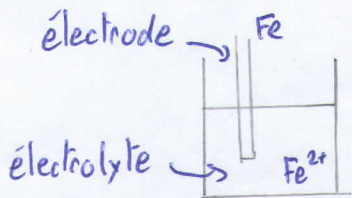 électrode
Fe
électrolyte
Fe²⁺